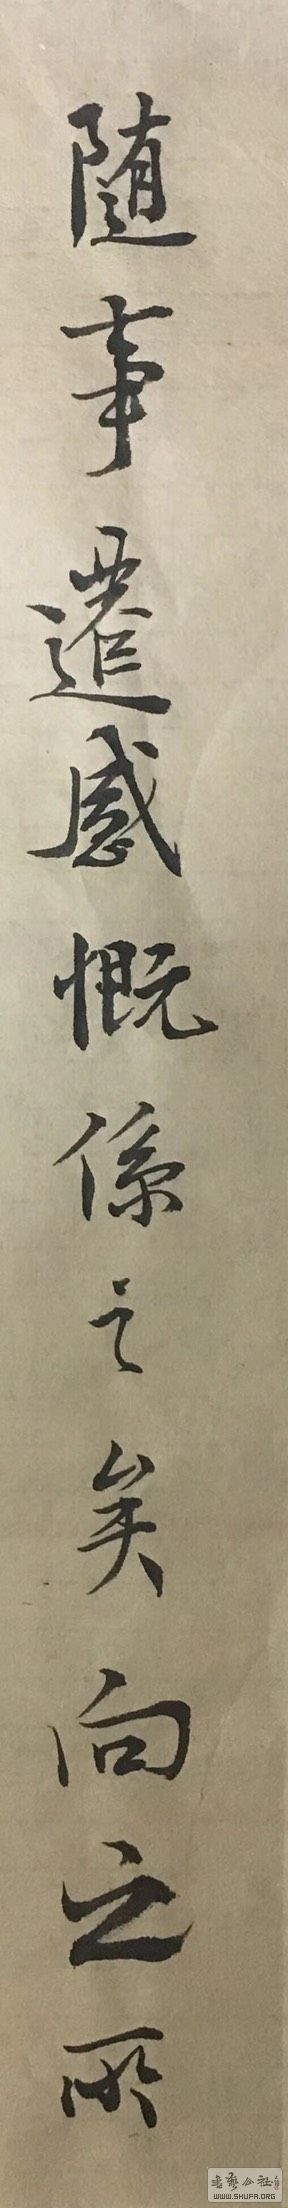 随事遷感慨係之矣向之所
書藝公社
WWW.SHUFA.ORG